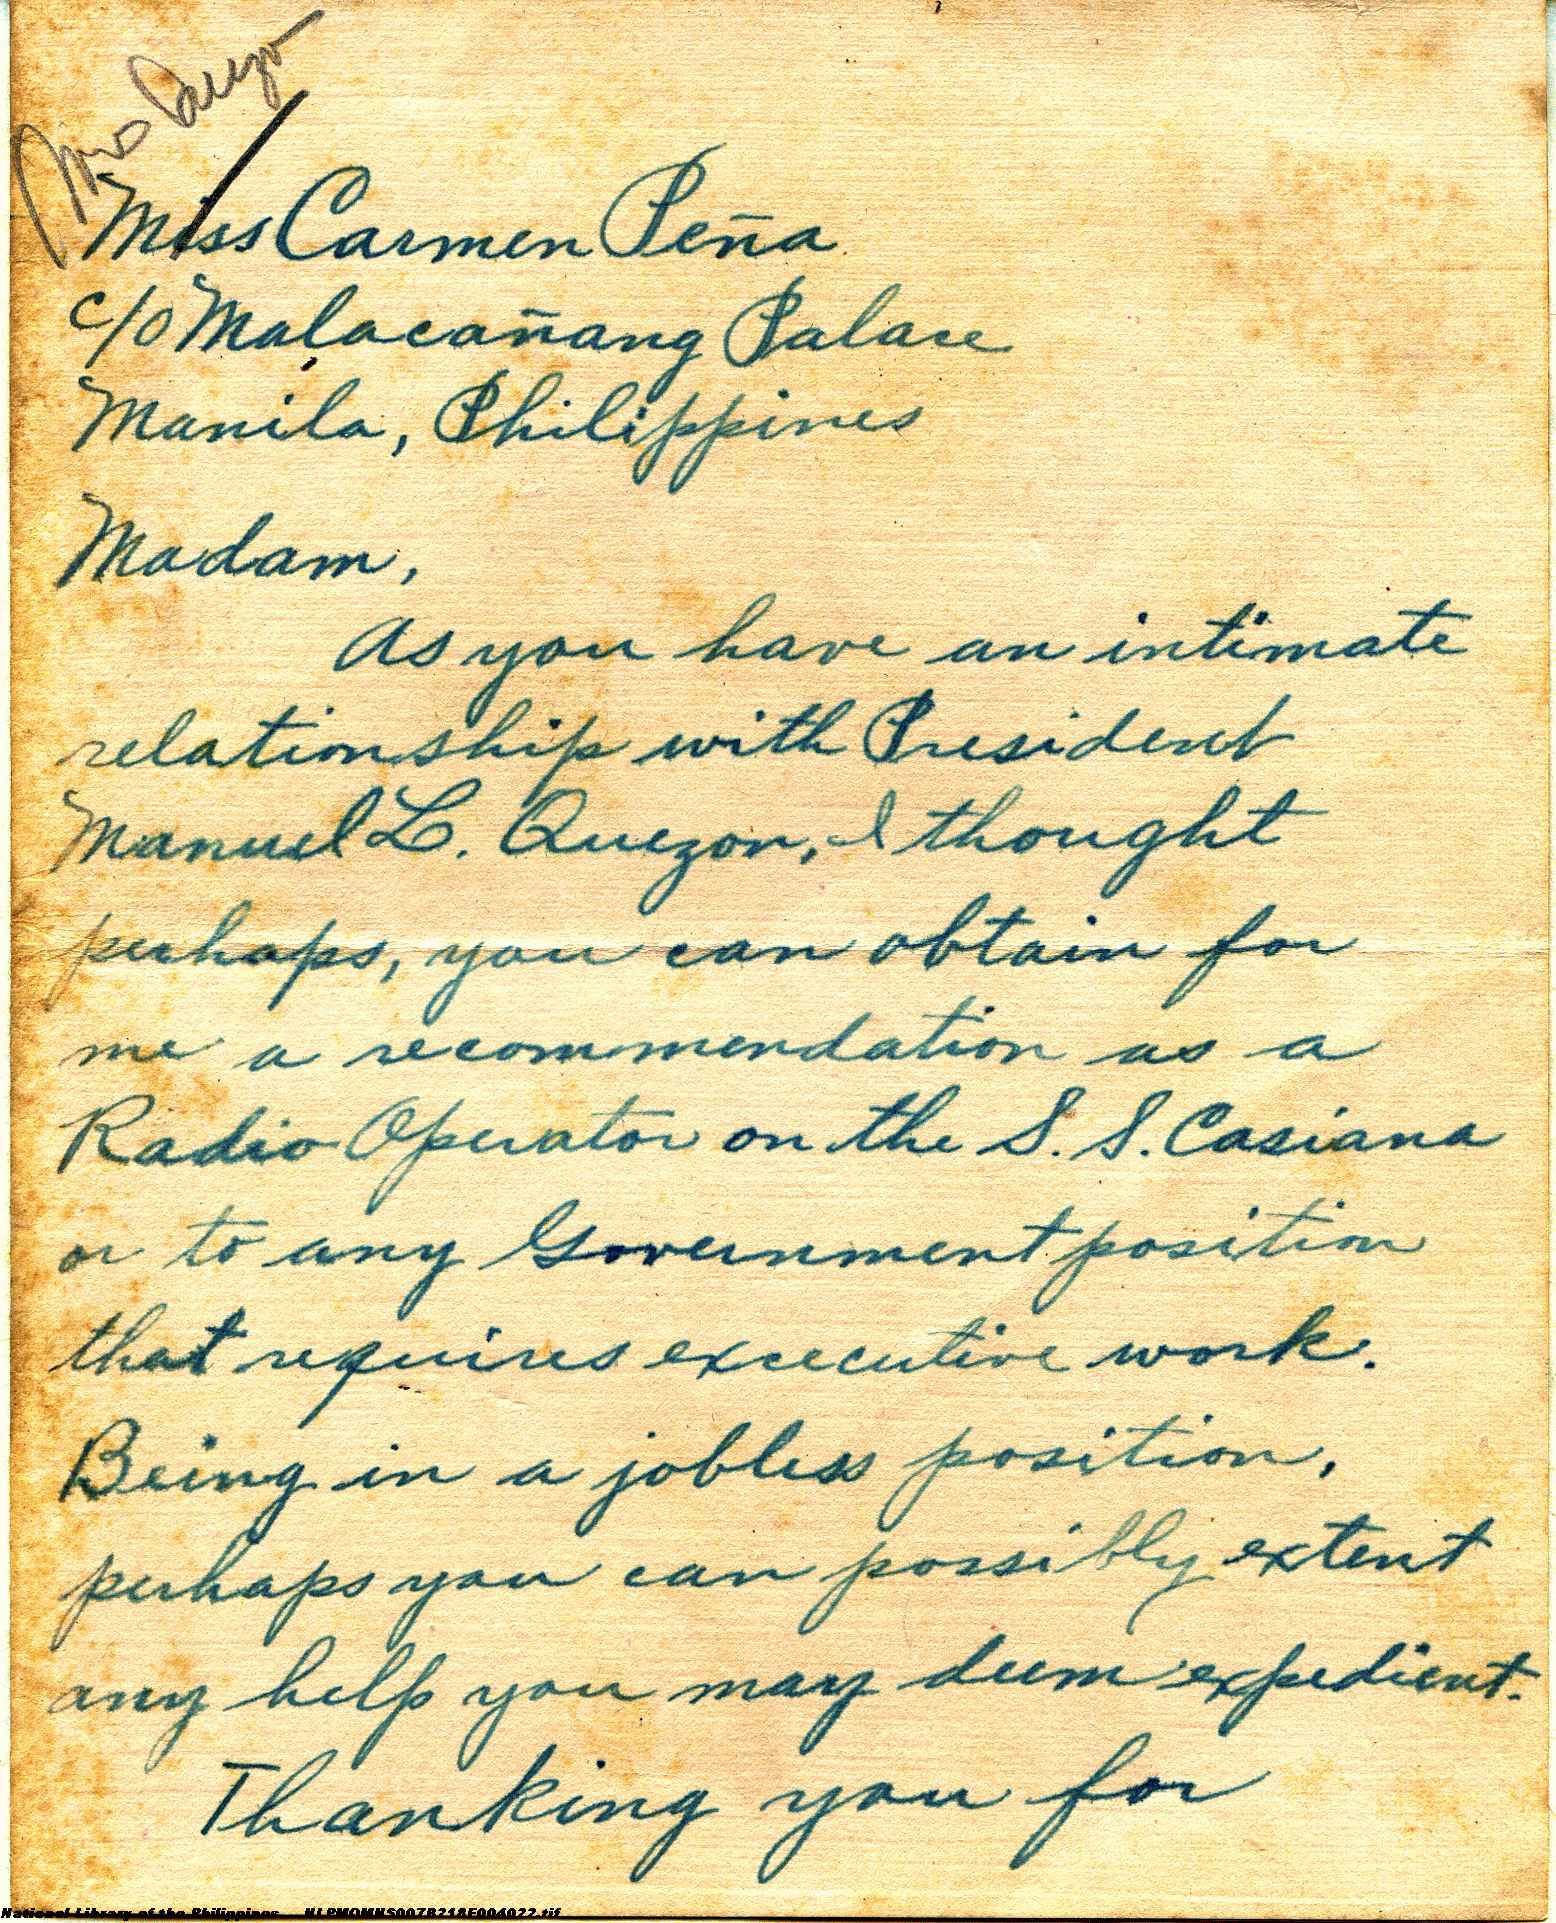 Mrs
Miss Carmen Peña
c/o Malacañang Palace
Manila, Philippines
Madam,
As you have an intimate
relationship with President
Manuel L. Quezon, I thought
perhaps, you can obtain for
me a recommendation as a
Radio Operator on the S. S. Casiana
or to any Government position
that requires excecutive work.
Being in a jobless position,
perhaps you can possibly extent
any help you may deem expedient.
Thanking you for
National Library of the Philippines NLPMQMNS007B218F004022.tif